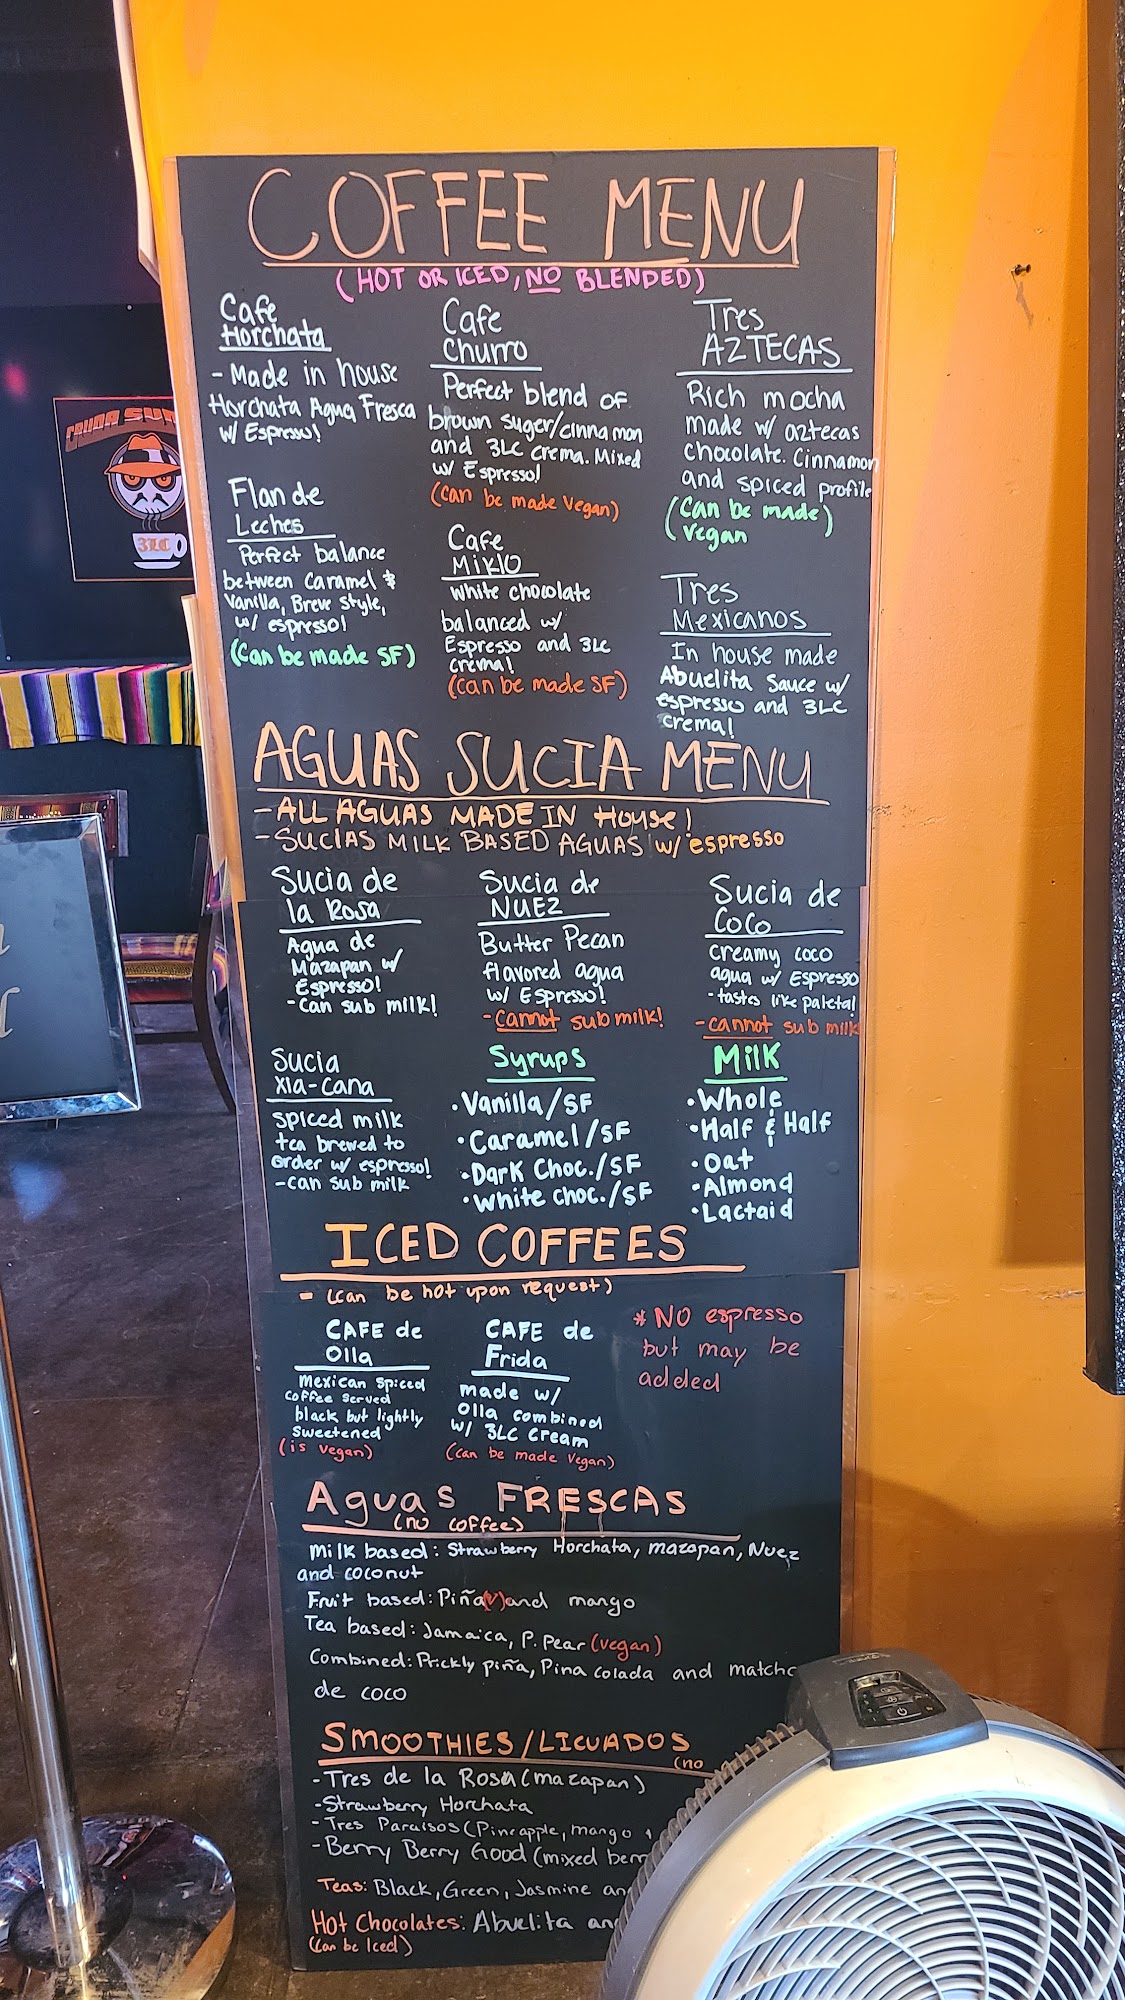 COFFEE MENU
(HOT OR ICED, NO BLENDED)
Cafe
Horchata
- Made in house
Horchata Agua Fresca
w/ Espresso!
Flan de
Leches
Perfect balance
between Caramel &
Vanilla, Breve Style,
w/ espresso!
(Can be made SF)
Cafe
Churro
Perfect blend of
brown suger/cinnamon
and 3LC crema. Mixed
w/ Espresso!
(Can be made Vegan)
Cafe
MIKIO
White chocolate
balanced w/
Espresso and 3LC
crema!
(Can be made SF)
Tres
AZTECAS
Rich mocha
made w/ aztecas
chocolate. Cinnamon
and spiced profile
(Can be made)
Vegan
Tres
Mexicanos
In house made
Abuelita Sauce w/
espresso and 3LC
crema!
AGUAS SUCIA MENU
-ALL AGUAS MADE IN House!
-SUCIAS MILK BASED AGUAS w/ espresso
Sucia de
la Rosa
Agua de
Mazapan w/
Espresso!
-Can sub milk!
Sucia de
NUEZ
Butter Pecan
flavored agua
w/ Espresso!
-Cannot sub milk!
Sucia de
CoCo
creamy coco
agua w/ Espresso
-tastes like paleta!
-cannot sub milk
Sucia
Xia-Cana
spiced milk
tea brewed to
order w/ espresso!
-can sub milk
Syrups
•Vanilla/SF
•Caramel/SF
•Dark Choc./SF
•White choc./SF
Milk
•Whole
•Half & Half
•Oat
•Almond
•Lactaid
ICED COFFEES
- (can be hot upon request)
CAFE de
Olla
Mexican Spiced
Coffee served
black but lightly
sweetened
(is vegan)
CAFE de
Frida
made w/
Olla combined
w/ 3LC cream
(can be made Vegan)
*NO espresso
but may be
added
Aguas FRESCAS
(no coffee)
Milk based: Strawberry Horchata, mazapan, Nuez
and coconut
Fruit based: Piña(V) and mango
Tea based: Jamaica, P. Pear (vegan)
Combined: Prickly piña, Pina colada and matcha
de coco
SMOOTHIES/LICUADOS
(no
-Tres de la Rosa (mazapan)
-Strawberry Horchata
-Tres Paraisos (Pineapple, mango
-Berry Berry Good (mixed berr
Teas: Black, Green, Jasmine an
Hot Chocolates: Abuelita an
(Can be Iced)
3LC